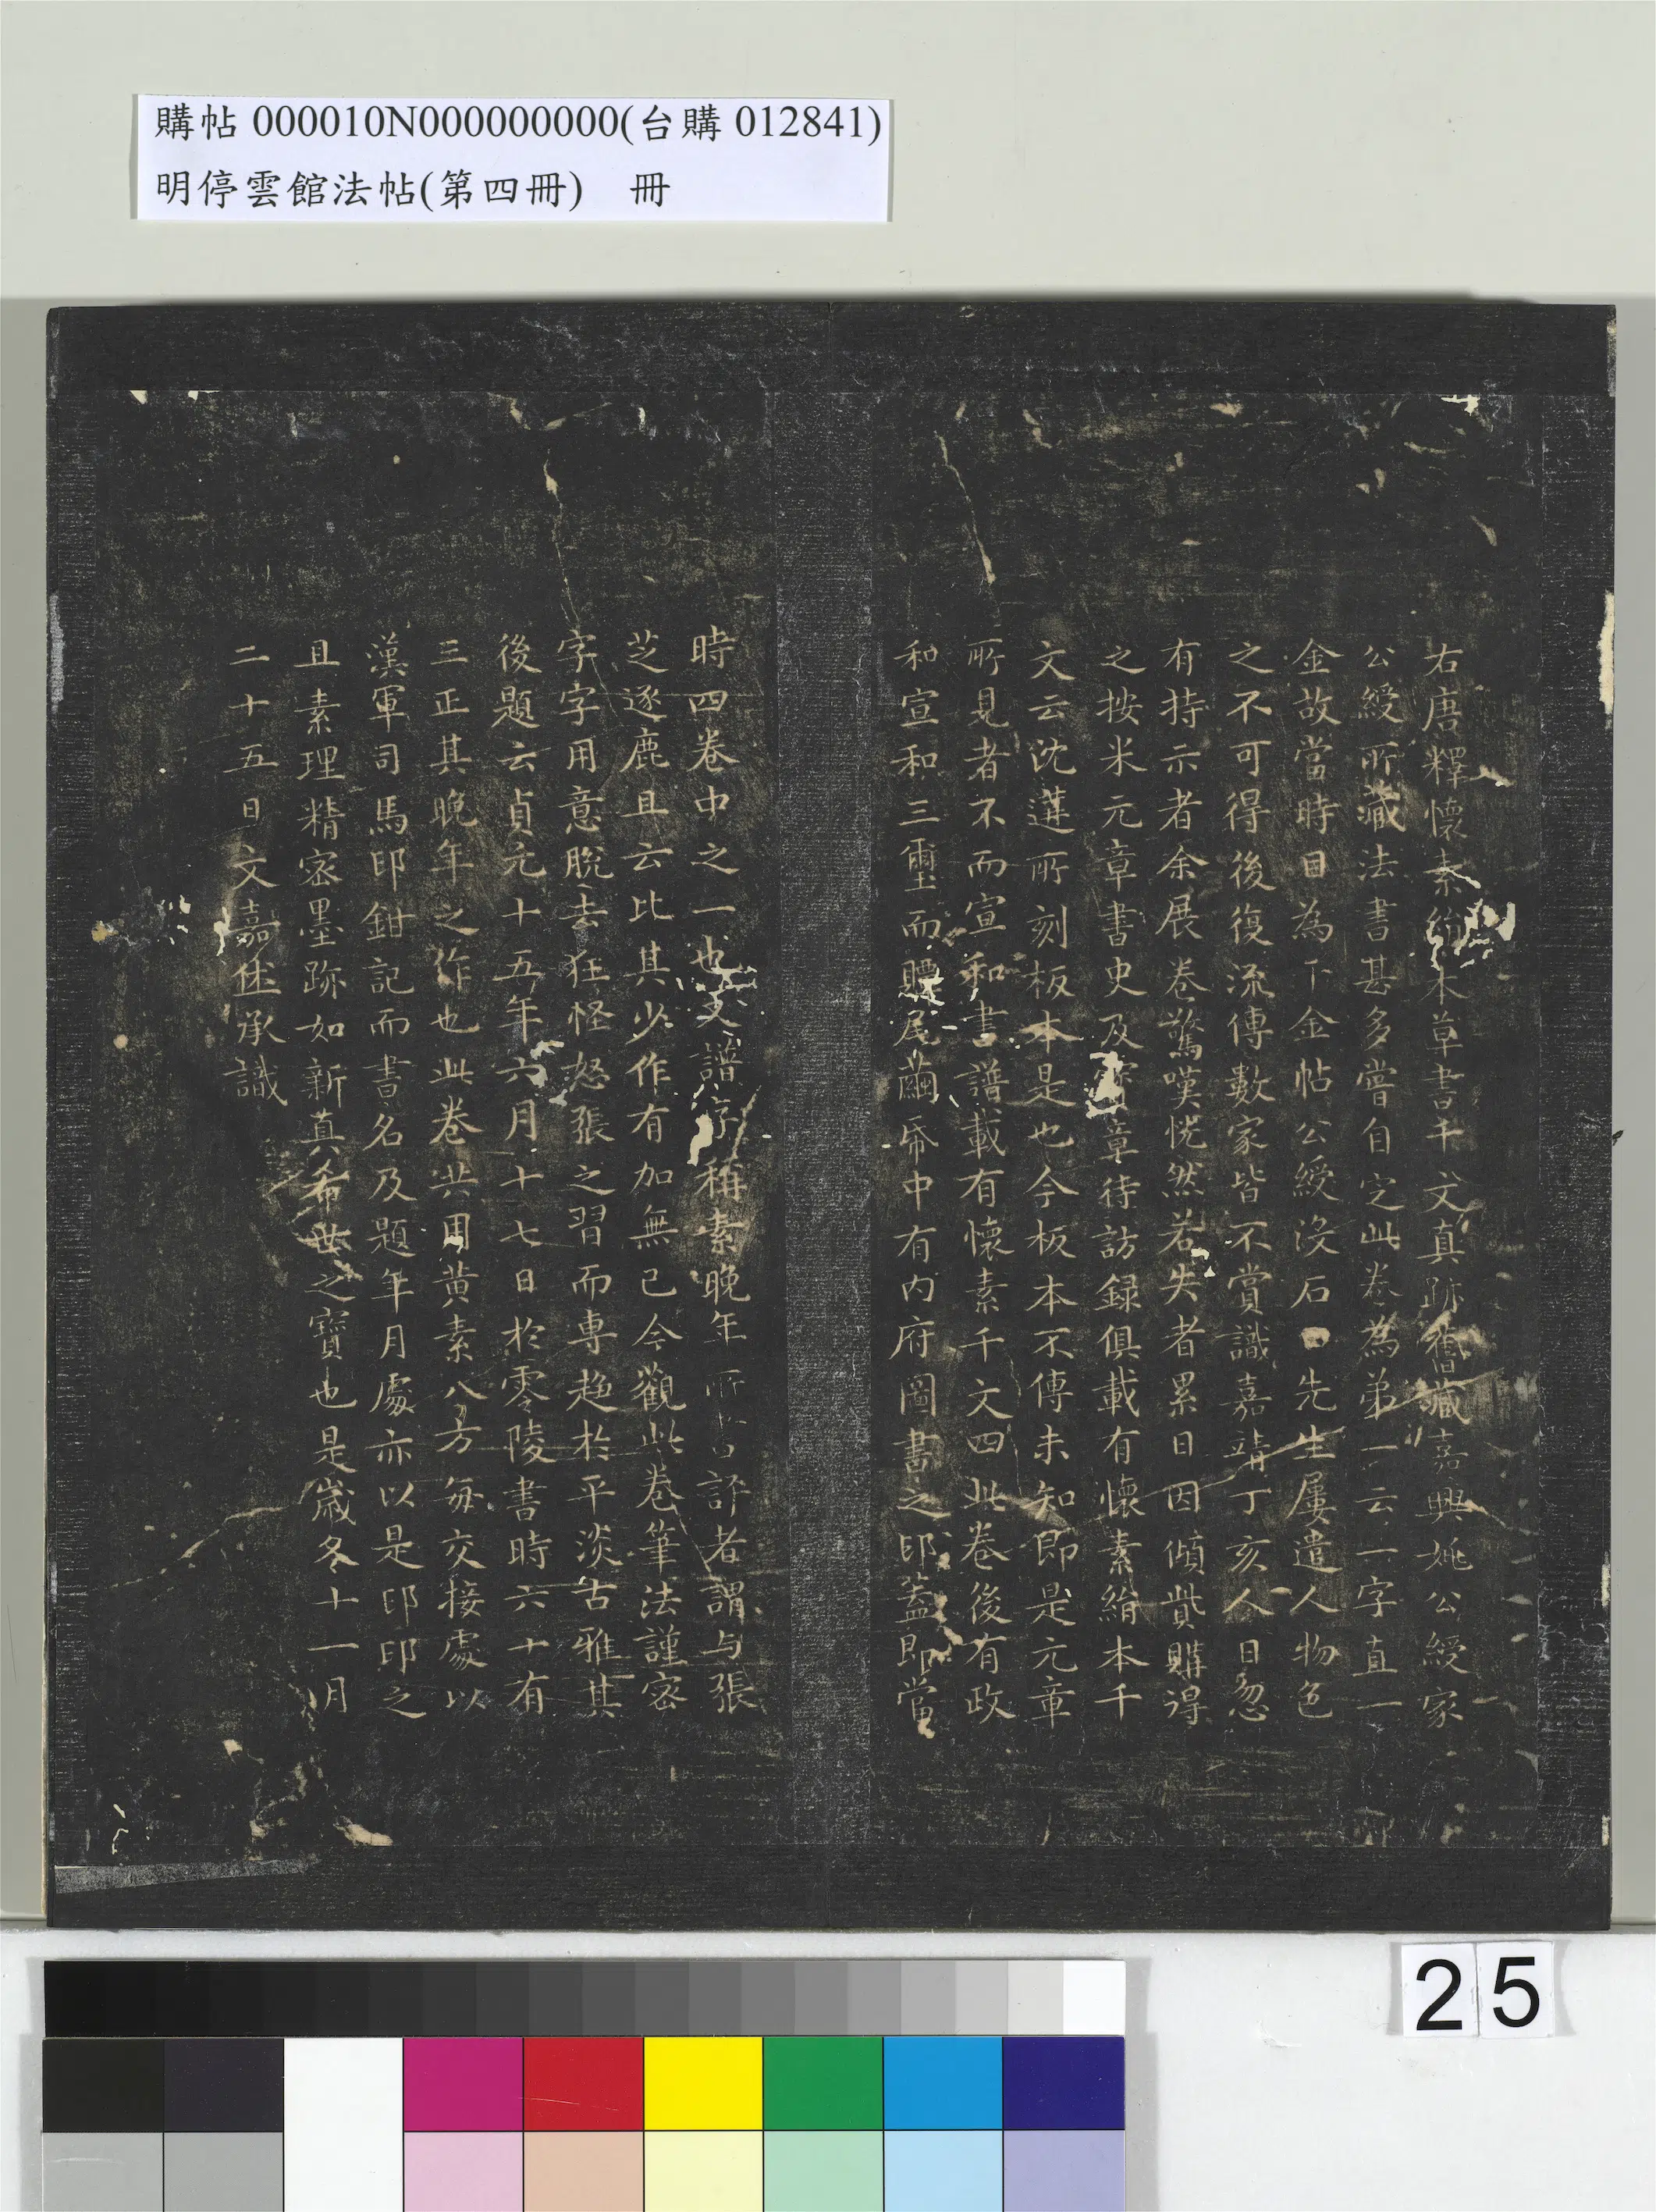 購帖 000010N000000000(台購 012841)
明停雲館法帖(第四冊)　冊
右唐釋懷素絹本草書千文真跡舊藏嘉興姚公綬家
公綬所藏法書甚多嘗自定此卷為弟一云一字直一
金故當時目為千金帖公綬沒石田先生屢遣人物色
之不可得後復流傳數家皆不賞識嘉靖丁亥人日忽
有持示者余展卷驚嘆恍然若失者累日因傾貲購得
之按米元章書史及寶章待訪録俱載有懷素絹本千
文云沈遘所刻板本是也今板本不傳未知即是元章
所見者不而宣和書譜載有懷素千文四此卷後有政
和宣和三璽而贉尾繭帋中有内府圖書之印葢即當
時四卷中之一也又譜字稱素晚年所書評者謂与張
芝逐鹿且云比其少作有加無已今觀此卷筆法謹密
字字用意脫去狂怪怒張之習而專趋於平淡古雅其
後題云貞元十五年六月十七日於零陵書時六十有
三正其晚年之作也此卷共用黄素八方每交接處以
漢軍司馬印鉗記而書名及題年月處亦以是印印之
且素理精密墨跡如新真希世之寶也是嵗冬十一月
二十五日文嘉休承識
25